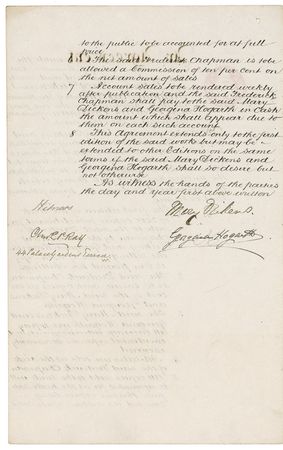 to the public to be accounted for at full
price
The said Frederick Chapman is to be
allowed a Commission of ten per Cent on
the net amount of sales
7 Account sales to be rendered weekly
after publication and the said Frederick
Chapman shall pay to the said Mary
Dickens and Georgina Hogarth in Cash
the amount which shall appear due to
them on each such account
8 This Agreement extends only to the first
edition of the said work but may be
extended to other Editions on the same
terms if the said Mary Dickens and
Georgina Hogarth shall so desire but
not otherwise
As witness the hands of the parties
the day and year first above written
Witness
Mary Dickens
Georgina Hogarth
44 Palace Gardens Terrace